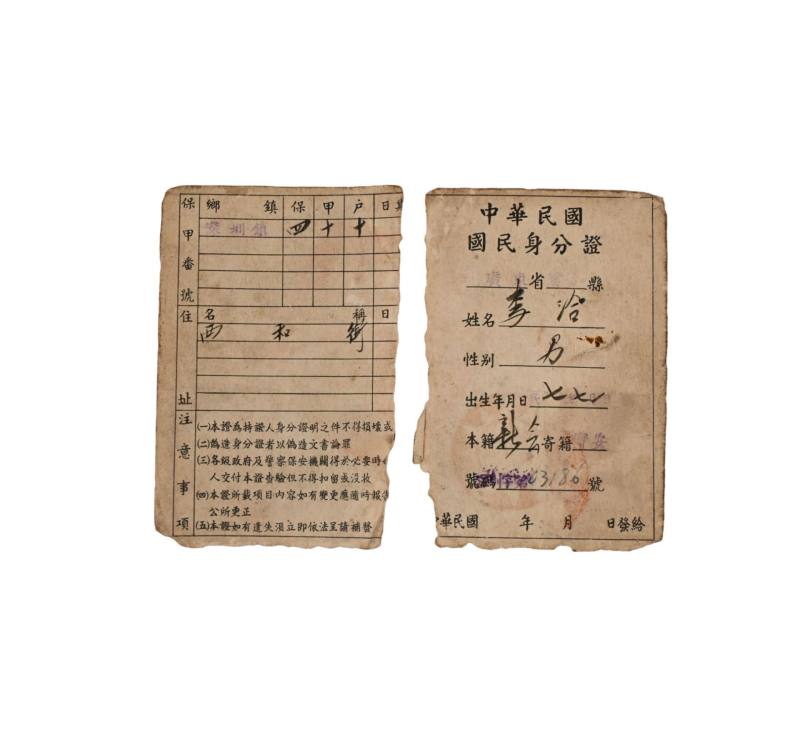 保甲番號
鄉 鎮 保 甲 戶 日期
深圳鎮 四 十 十
住址
名 稱 日
西和街
注意事項
(一)本證為持證人身分證明之件不得損壞或
(二)偽造身分證者以偽造文書論罪
(三)各級政府及警察保安機關得於必要時
人交付本證查驗但不得扣留或沒收
(四)本證所載項目內容如有變更應隨時報告
公所更正
(五)本證如有遺失須立即依法呈請補替
中華民國
國民身分證
省 縣
姓名
性別 男
出生年月日
本籍 新會 寄籍 寶安
號碼 43186 號
中華民國 年 月 日發給